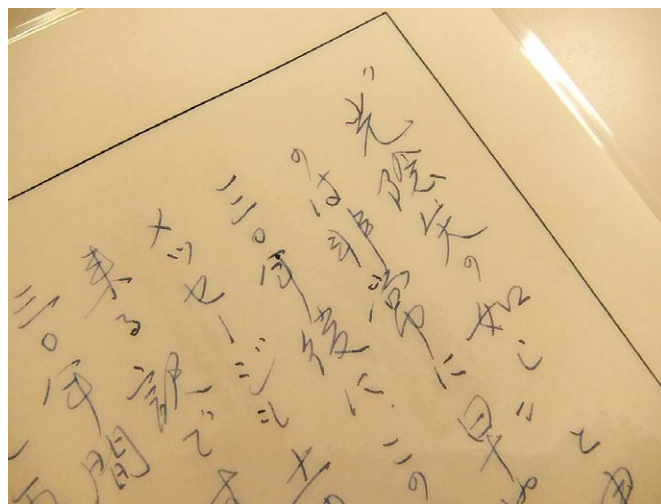 〝光陰矢の如し〟と
のは非常に早
三〇年後にこの
メッセージ
来る訳です
三〇年間